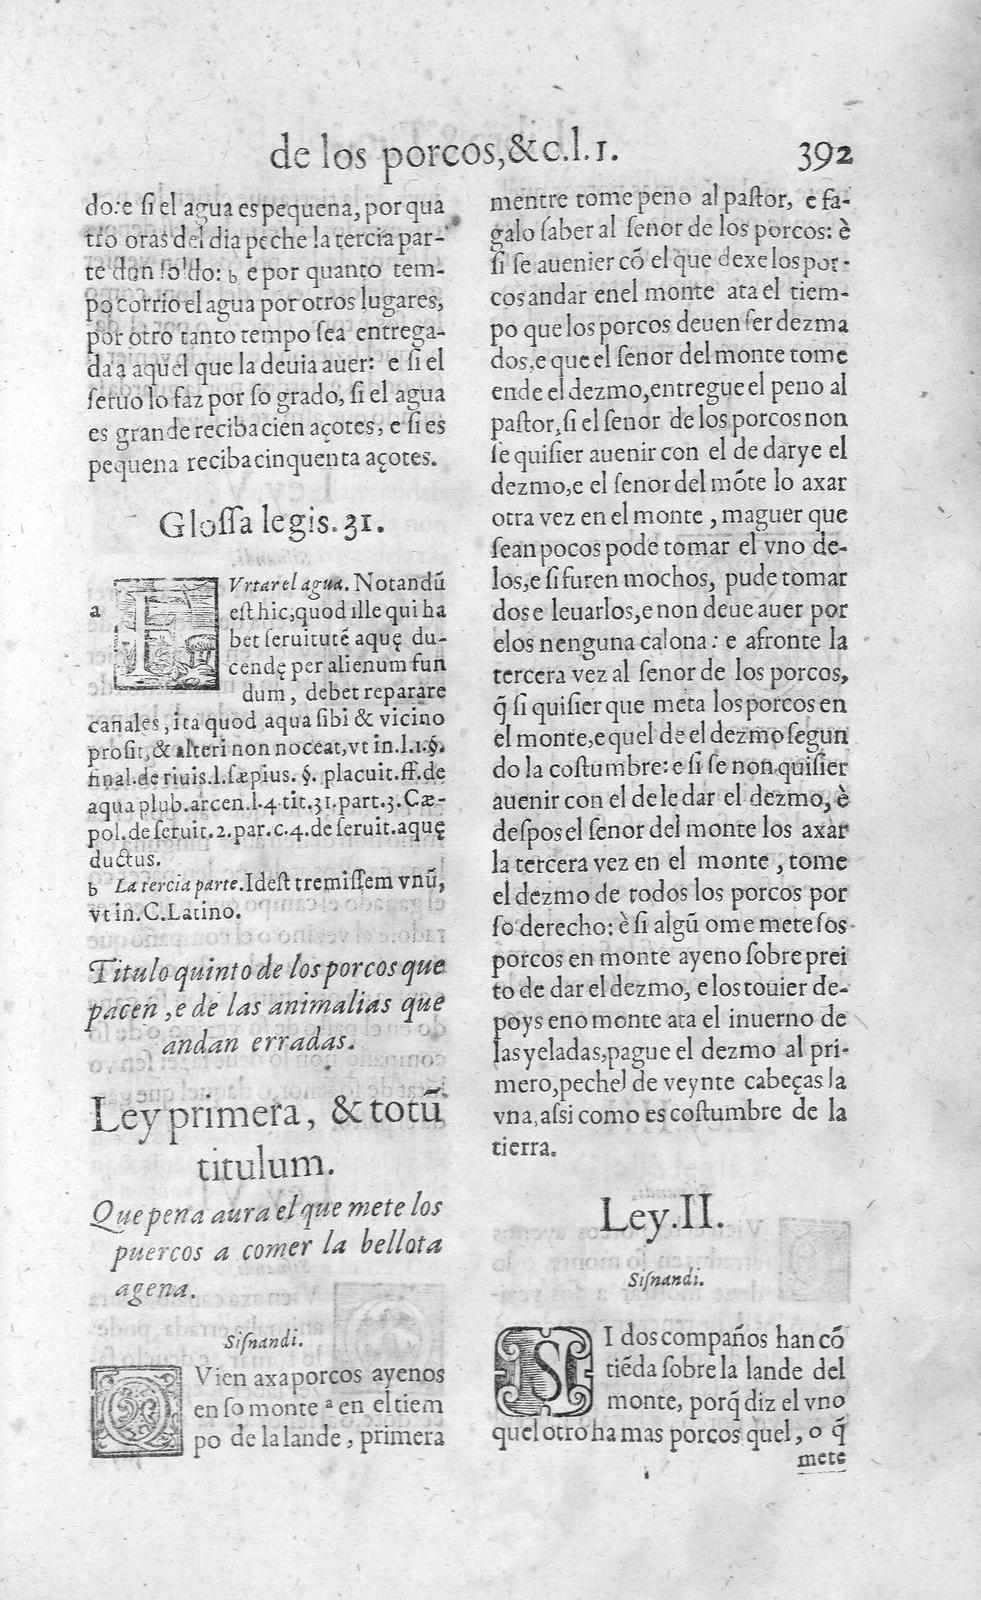 de los porcos,&c.l.1. 392
do:e ſi el agua es pequena, por qua
tro oras del dia peche la tercia par-
te dun ſoldo: b e por quanto tem-
po corrio el agua por otros lugares,
por otro tanto tempo ſea entrega-
da a aquel que la deuia auer: e ſi el
ſeruo lo faz por ſo grado, ſi el agua
es grande reciba cien açotes, e ſi es
pequena reciba cinquenta açotes.
Gloſſa legis. 31.
a FVrtar el agua. Notandū
eſt hic, quod ille qui ha
bet ſeruitutē aquę du-
cendę per alienum fun
dum, debet reparare
canales, ita quod aqua ſibi & vicino
proſit, & alteri non noceat, vt in.l.1.§.
final.de riuis.l.ſæpius. §. placuit.ff.de
aqua plub.arcen.l.4.tit.31.part.3.Cæ-
pol.de ſeruit.2.par.c.4.de ſeruit.aquę
ductus.
b La tercia parte. Ideſt tremiſſem vnū,
vt in. C. Latino.
Titulo quinto de los porcos que
pacen, e de las animalias que
andan erradas.
Ley primera, & totū
titulum.
Que pena aura el que mete los
puercos a comer la bellota
agena.
Siſnandi.
QVien axa porcos ayenos
en ſo monte a en el tiem
po de la lande, primera
mentre tome peno al paſtor, e fa-
galo ſaber al ſenor de los porcos: è
ſi ſe auenier cō el que dexe los por-
cos andar enel monte ata el tiem-
po que los porcos deuen ſer dezma
dos, e que el ſenor del monte tome
ende el dezmo, entregue el peno al
paſtor, ſi el ſenor de los porcos non
ſe quiſier auenir con el de darye el
dezmo, e el ſenor del mōte lo axar
otra vez en el monte, maguer que
ſean pocos pode tomar el vno de-
los, e ſi furen mochos, pude tomar
dos e leuarlos, e non deue auer por
elos nenguna calona: e afronte la
tercera vez al ſenor de los porcos,
q̄ ſi quiſier que meta los porcos en
el monte, e quel de el dezmo ſegun
do la coſtumbre: e ſi ſe non quiſier
auenir con el de le dar el dezmo, è
deſpos el ſenor del monte los axar
la tercera vez en el monte, tome
el dezmo de todos los porcos por
ſo derecho: è ſi algū ome mete ſos
porcos en monte ayeno ſobre prei
to de dar el dezmo, e los touier de-
poys eno monte ata el inuerno de
las yeladas, pague el dezmo al pri-
mero, pechel de veynte cabeças la
vna, aſsi como es coſtumbre de la
tierra.
Ley.II.
Siſnandi.
SI dos compaños han cō
tiēda ſobre la lande del
monte, porq̄ diz el vno
quel otro ha mas porcos quel, o q̄
mete